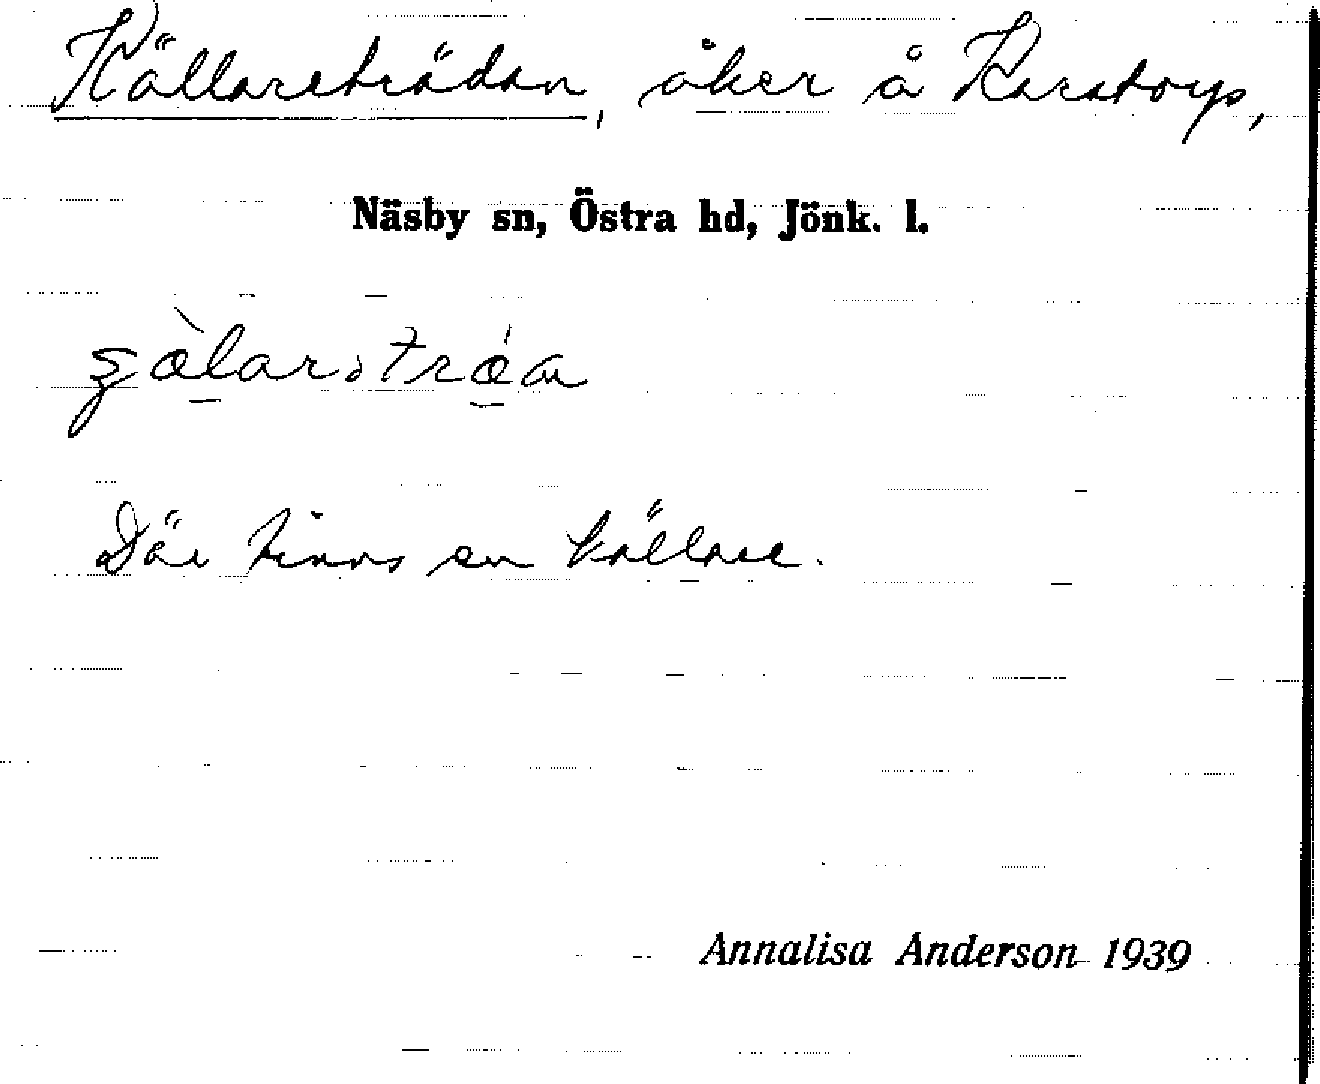 Källareträdan, åker å Karstorp,
Näsby sn, Östra hd, Jönk. l.
Där finns en källare.
Annalisa Anderson 1939